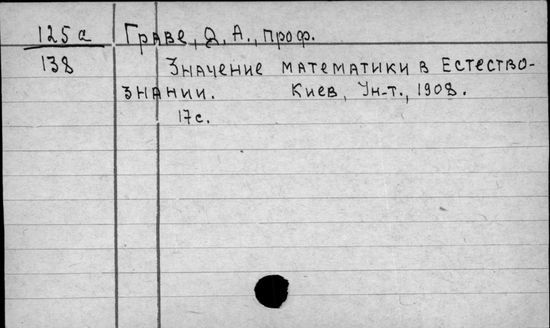 125а Граве, Д. А., проф.
138 Значение математики в Естество-
знании. Киев, Ун-т., 1908.
17с.